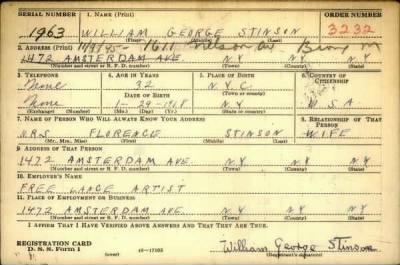 SERIAL NUMBER 1. NAME (Print) ORDER NUMBER
1963 WILLIAM GEORGE STINSON 3232
(First) (Middle) (Last)
2. ADDRESS (Print) 1611 Nelson Av. Bronx
1472 AMSTERDAM AVE. N.Y. N.Y.
(Number and street or R. F. D. number) (Town) (County) (State)
3. TELEPHONE 4. AGE IN YEARS 5. PLACE OF BIRTH 6. COUNTRY OF CITIZENSHIP
None 22 N.Y.C.
DATE OF BIRTH (Town or county)
None 1-29-1918 N.Y. U.S.A.
(Exchange) (Number) (Mo.) (Day) (Yr.) (State or country)
7. NAME OF PERSON WHO WILL ALWAYS KNOW YOUR ADDRESS 8. RELATIONSHIP OF THAT PERSON
MRS FLORENCE STINSON WIFE
(Mr., Mrs., Miss) (First) (Middle) (Last)
9. ADDRESS OF THAT PERSON
1472 AMSTERDAM AVE. N.Y. N.Y.
(Number and street or R. F. D. number) (Town) (County) (State)
10. EMPLOYER'S NAME
FREE LANCE ARTIST
11. PLACE OF EMPLOYMENT OR BUSINESS
1472 AMSTERDAM AVE. N.Y. N.Y.
(Number and street or R. F. D. number) (Town) (County) (State)
I AFFIRM THAT I HAVE VERIFIED ABOVE ANSWERS AND THAT THEY ARE TRUE.
REGISTRATION CARD
D. S. S. Form 1 (over) 16—17105 William George Stinson
(Registrant's signature)